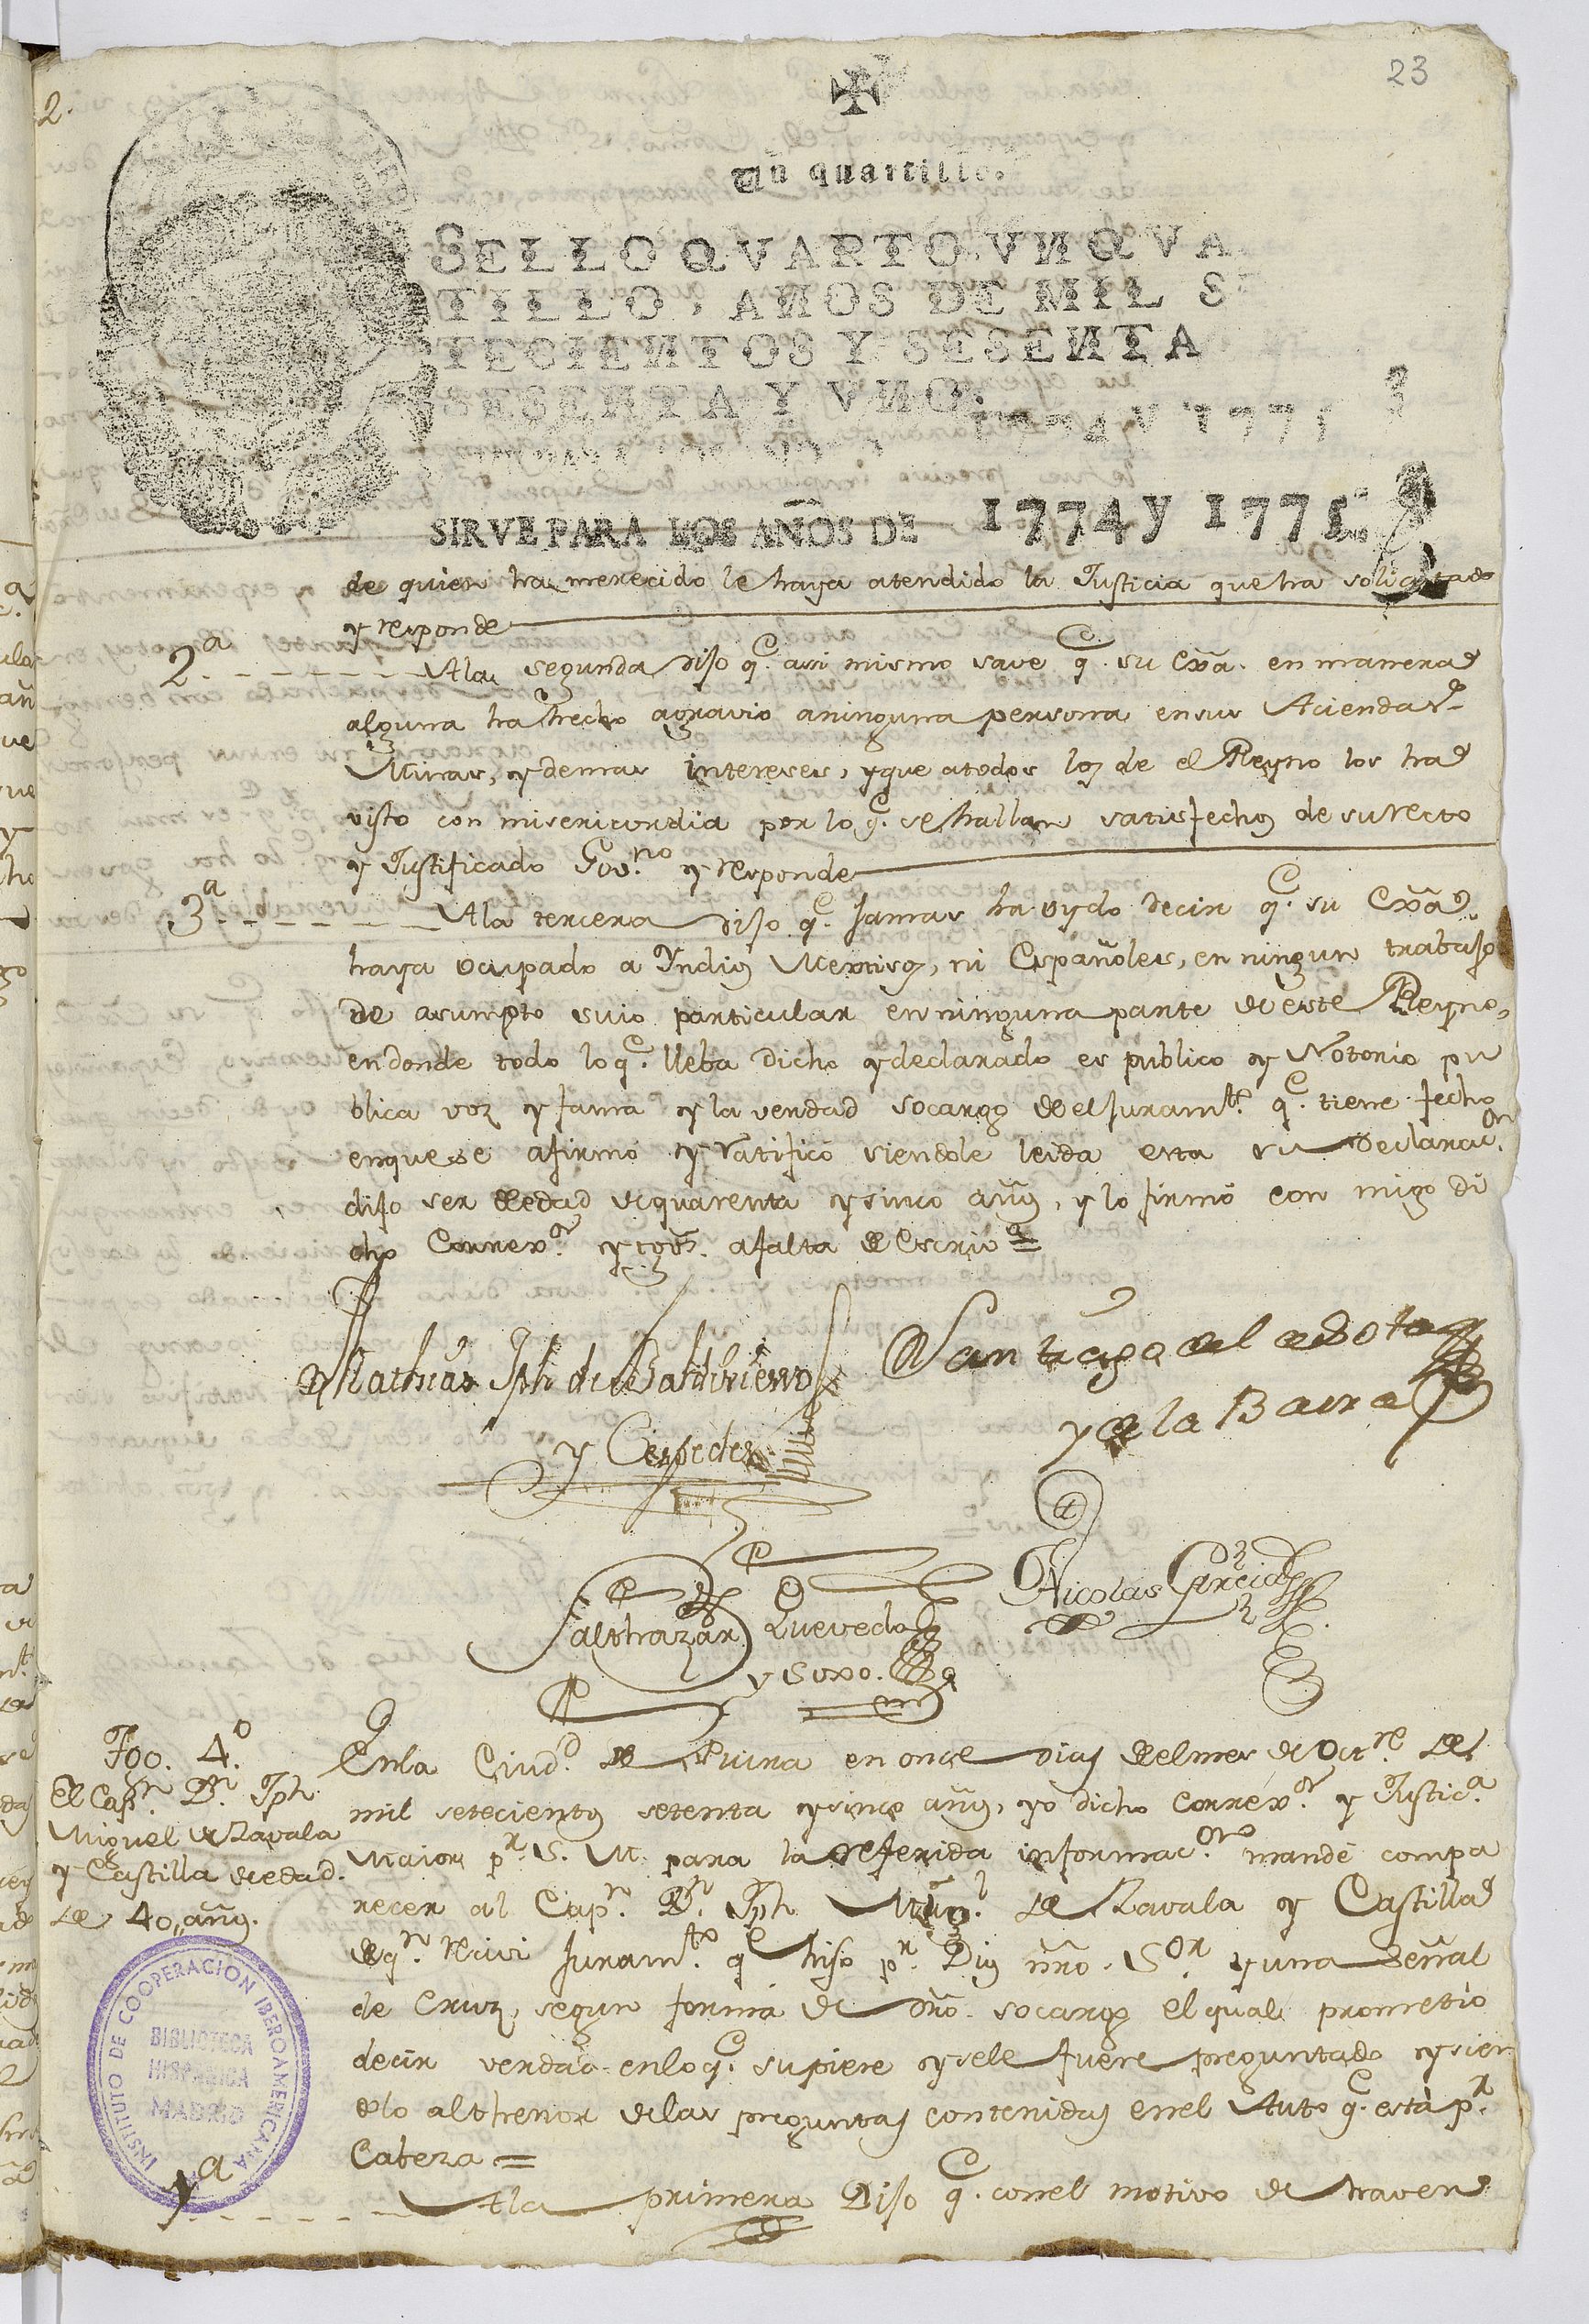 23
2.
Un quartillo.
SELLO QVARTO, VN QVA
TILLO, AÑOS DE MIL SE
TECIENTOS Y SESENTA
SESENTA Y VNO.
1774 y 1775
SIRVE PARA LOS AÑOS DE 1774 y 1775
de quien ha merecido le haya atendido la Justicia que ha solicitado
y responde
2.ª Ala segunda dijo q.e asi mismo save q.e su Exã. en manera
alguna ha hecho agravio aninguna persona ensus Aciendas
Minas, y demas intereses, y que atodos los de el Reyno los ha
visto con misericordia por lo q.e se hallan satisfechos de su recto
y Justificado Gov.no y responde
3.ª Ala tercera dijo q.e Jamas ha oydo decir q.e su Exã.
haya ocupado a Yndios Mestisos, ni Españoles, en ningun trabajo
de asumpto suio particular en ninguna parte de este Reyno,
endonde todo lo q.e lleba dicho y declarado es publico y Notorio pu
blica voz y fama y la verdad so cargo de el Juram.to q.e tiene fecho
enque se afirmó y ratificó siendole leida esta su Declarac.on
dijo ser de edad de quarenta y sinco años, y lo firmó con migo di
cho Correx.or y tgos. afalta de Escriv.o =
Mathias Jph de Baldivieso
y Cespedes
Santiago del a Sota
y de la Barra
Balthazar Quevedo
y Soxo.
Nicolas Garcia
Tgo. 4.o
El Cap.n D.n Jph
Miguel de Zavala
y Castilla de edad
de 40 años.
Enla Ciud.d de Piura en once dias del mes de Oct.re de
mil setecientos setenta y sinco años, yo dicho Correx.or y Justic.a
Maior p.r S. M. para la referida informac.on mandé compa
recer al Cap.n D.n Jph Mig.l de Zavala y Castilla
de q.n recivi Juram.to q.e hiso p.r Dios nrõ. S.or y una Señal
de Cruz, segun forma de drõ. so cargo el qual prometió
decir verdad enlo q.e supiere y sele fuere preguntado y sien
dolo althenor delas preguntas contenidas enel Auto q.e está p.r
Cabeza =
1.ª Ala primera Dijo q.e conel motivo de haver
INSTITUTO DE COOPERACION IBEROAMERICANA
BIBLIOTECA
HISPANICA
MADRID